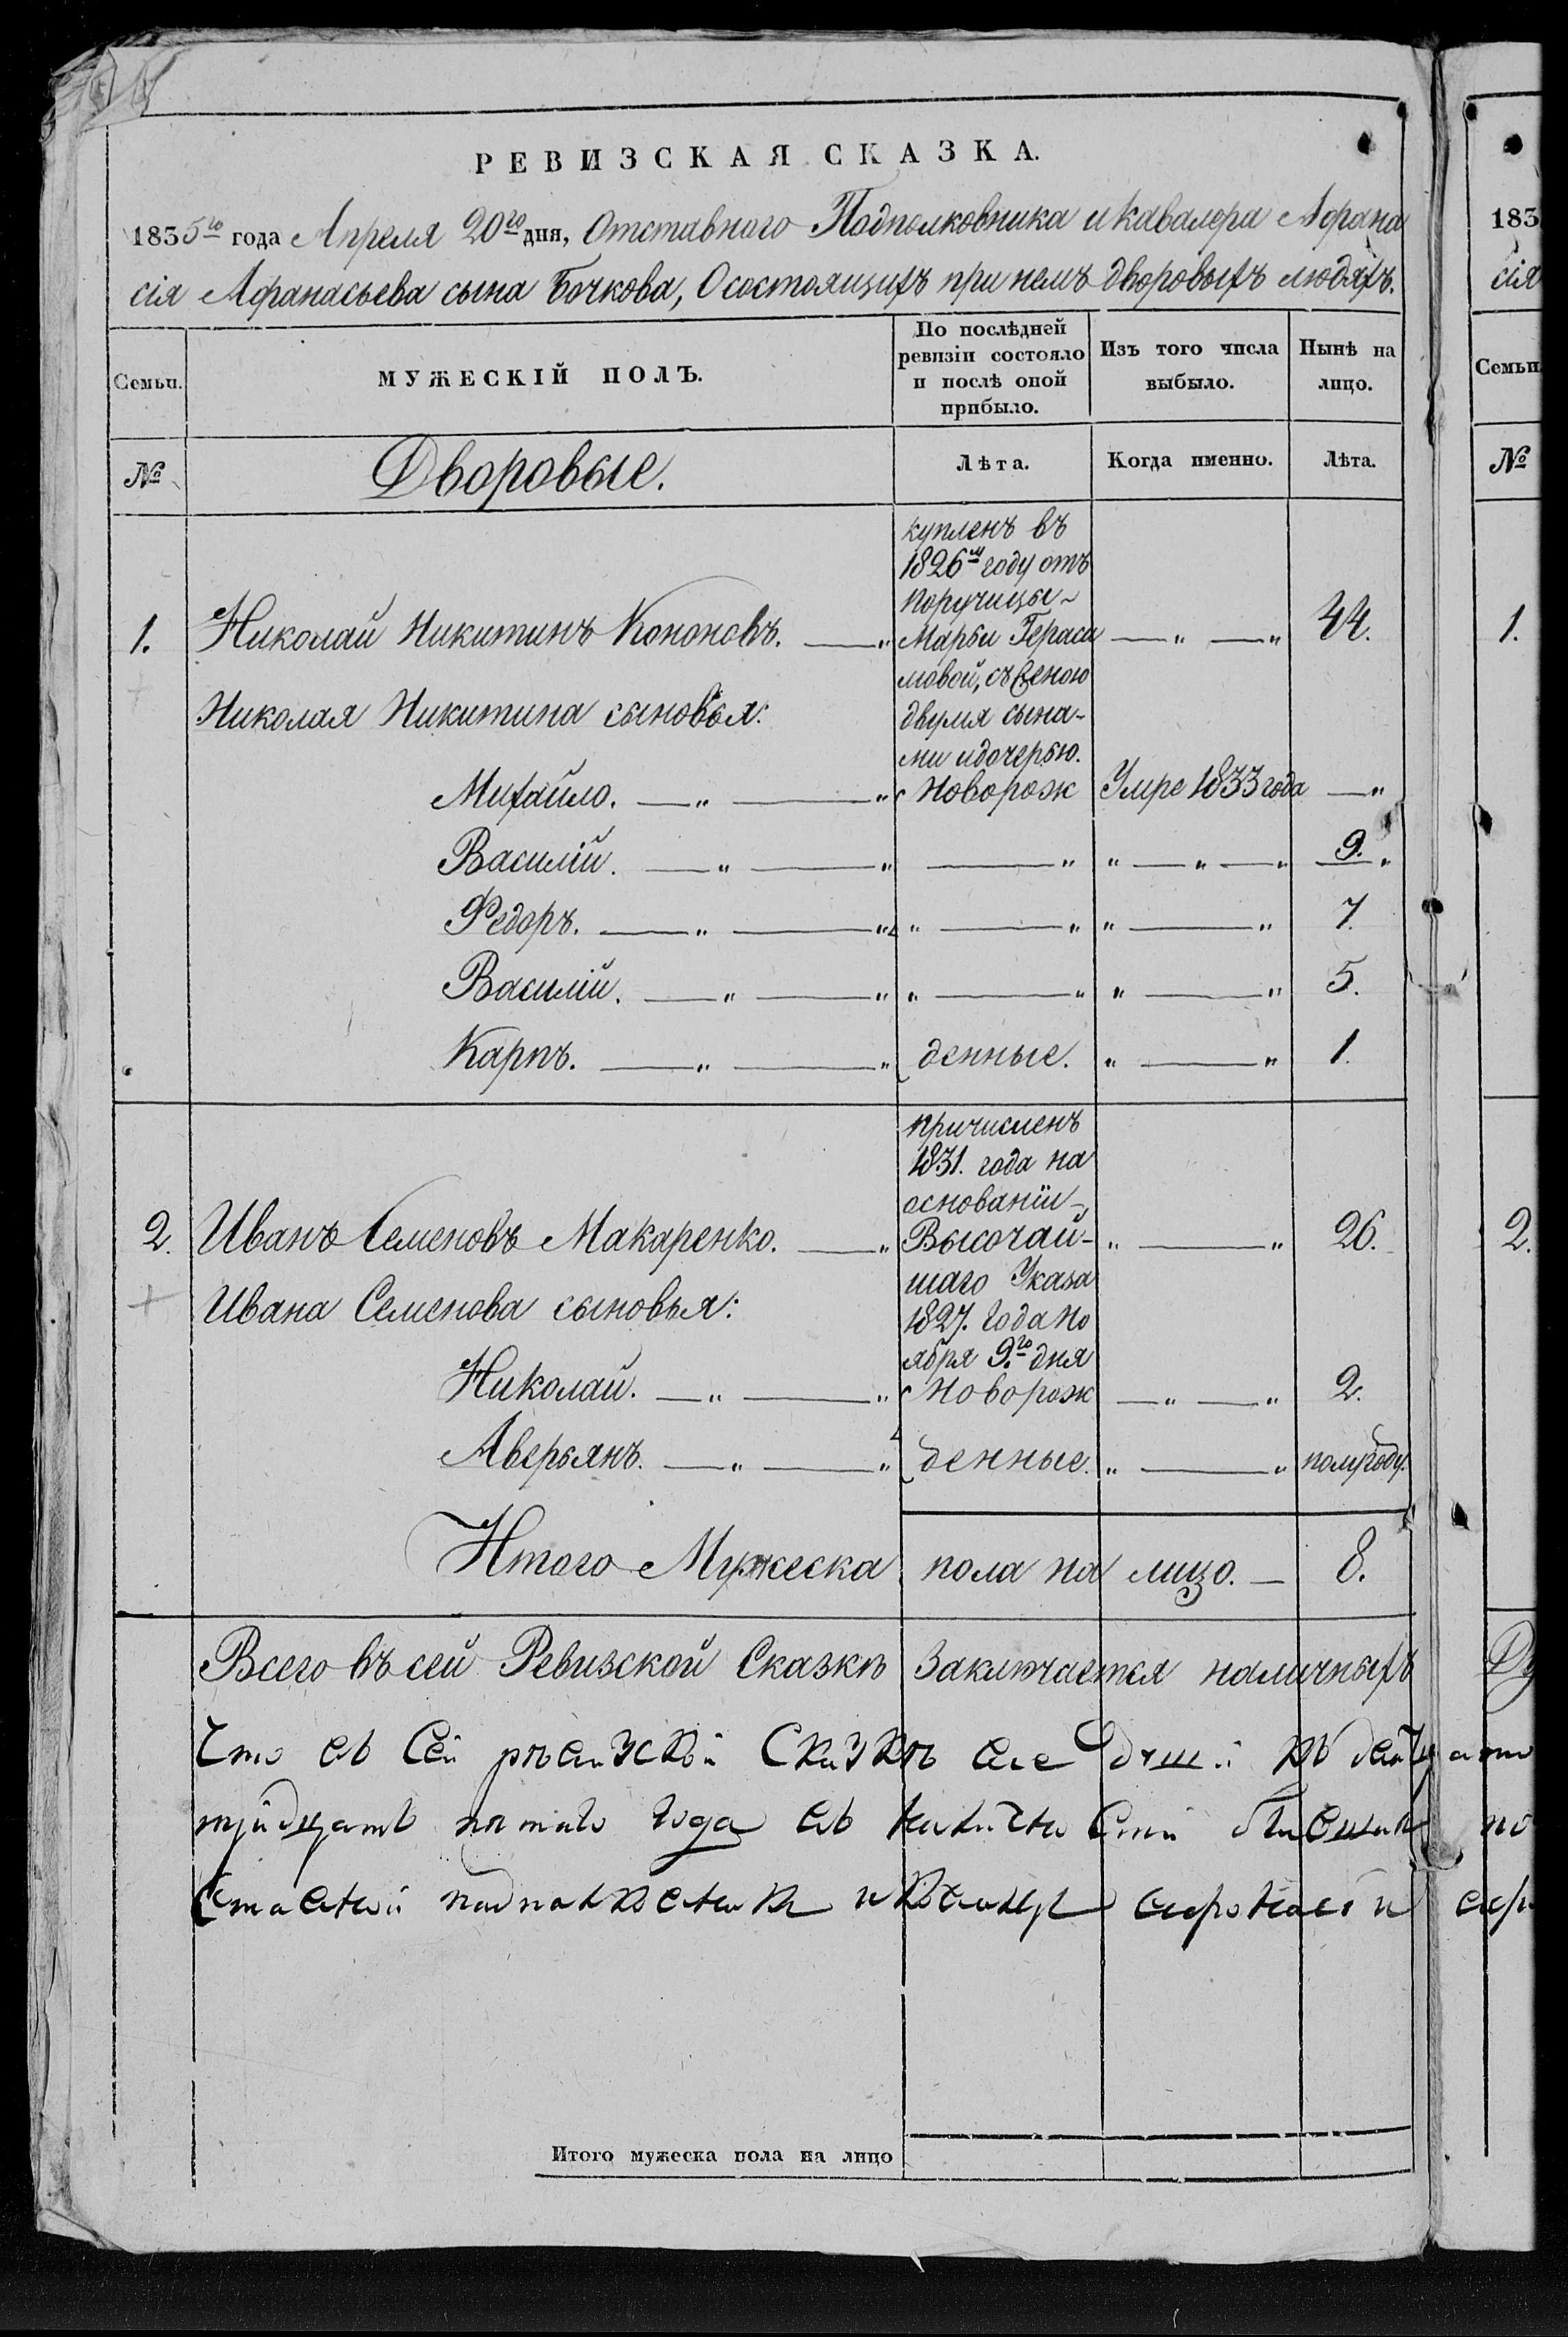 РЕВИЗСКАЯ СКАЗКА.
1835го года Апреля 20го дня, Отставнаго Подполковника и кавалера Афана
сія Афанасьева сына Бочкова, О состоящихъ при немъ дворовыхъ людяхъ.
Семьи.
МУЖЕСКІЙ ПОЛЪ.
По послѣдней
ревизіи состояло
и послѣ оной
прибыло.
Изъ того числа
выбыло.
Нынѣ на
лицо.
№
Дворовые.
Лѣта.
Когда именно.
Лѣта.
купленъ въ
1826м году отъ
порутчицы
1. Николай Никитинъ Кононовъ. Марьи Гераси 44.
мовой, съ женою
Николая Никитина сыновья: двумя сына-
ми и дочерью.
Михайло. Новорож Умре 1833 года
Василій. 9.
Федоръ. 7.
Василій. 5.
Карпъ. денные. 1.
причисленъ
1831. года на
основаніи
2. Иванъ Семеновъ Макаренко. Высочай- 26.
шаго Указа
Ивана Семенова сыновья: 1827. года но
ября 9.го дня
Николай. Новорож 2.
Аверьянъ. денные. полугоду.
Итого Мужеска пола на лицо. 8.
Всего въ сей Ревизской Сказкѣ Заключается наличныхъ
Что въ Сей ревизской Сказкѣ все души
тридцать пятаго года
подполковник и кавалер
Итого мужеска пола на лицо
183
сія
Семьи
№
1.
2.